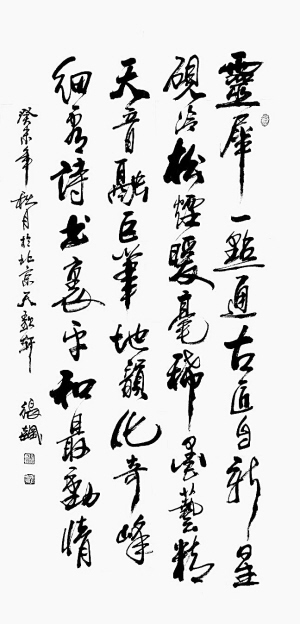 靈犀一點通古匠自新星
硯冷松煙暖毫稀墨藝精
天音融巨筆地籟化奇峰
細看詩書裏平和最動情
癸未年秋月於北京天軒
張飆